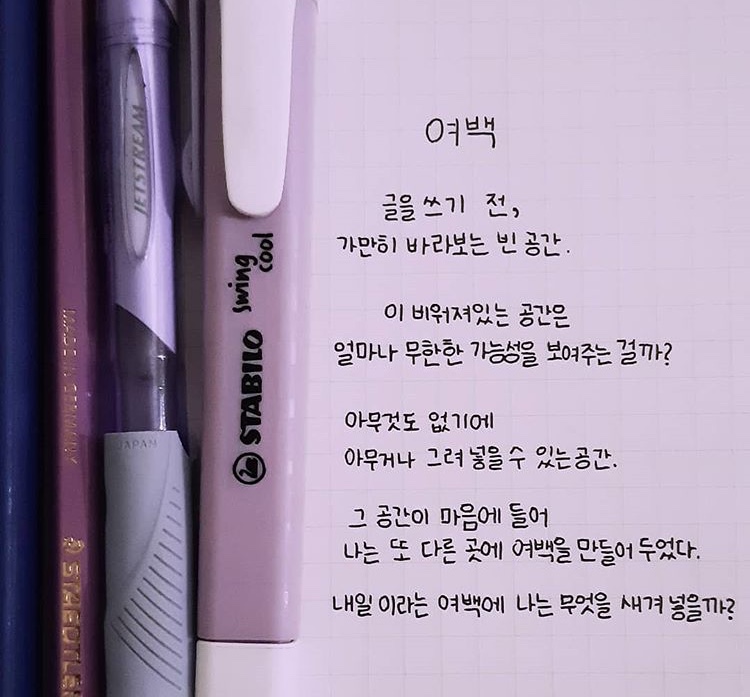 여백
글을 쓰기 전,
가만히 바라보는 빈 공간.
이 비워져있는 공간은
얼마나 무한한 가능성을 보여주는 걸까?
아무것도 없기에
아무거나 그려 넣을 수 있는 공간.
그 공간이 마음에 들어
나는 또 다른 곳에 여백을 만들어 두었다.
내일 이라는 여백에 나는 무엇을 새겨 넣을까?
STABILO swing
cool
JETSTREAM
JAPAN
MADE IN GERMANY
STAEDTLER